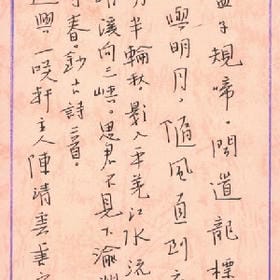 盡子規啼。聞道龍標
與明月。隨風直到
月半輪秋。影入平羌江水流
清溪向三峽。思君不見下渝州
春。鈔古詩二首。
興。一咲軒主人陳清雲書